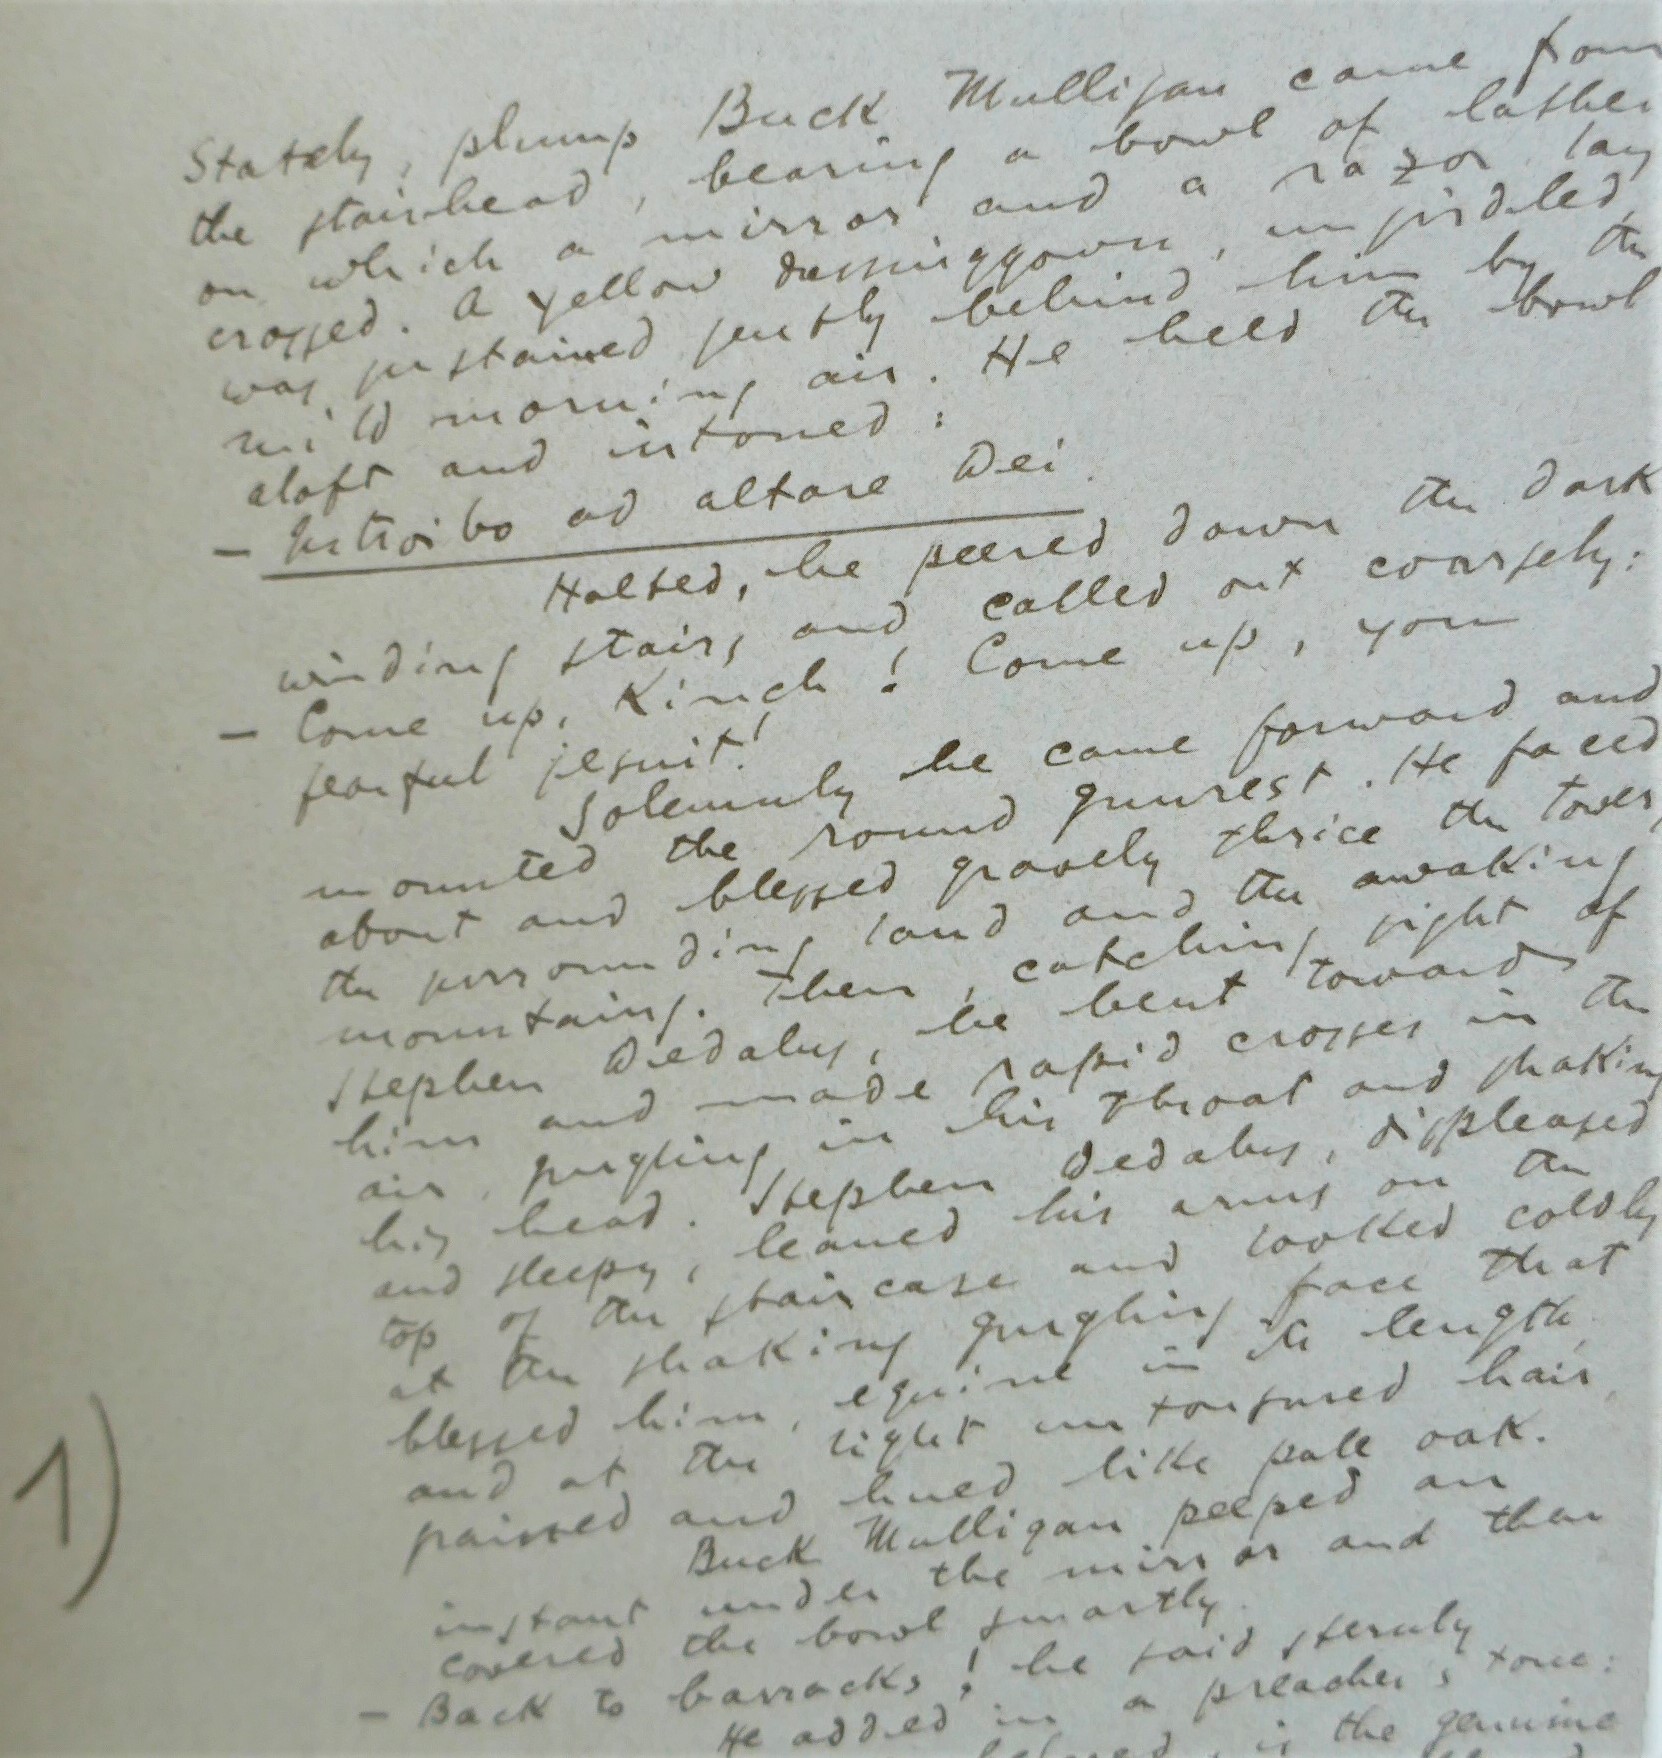 Stately, plump Buck Mulligan came from
the stairhead, bearing a bowl of lather
on which a mirror and a razor lay
crossed. A yellow dressinggown, ungirdled,
was sustained gently behind him by the
mild morning air. He held the bowl
aloft and intoned:
— Introibo ad altare Dei.
Halted, he peered down the dark
winding stairs and called out coarsely:
— Come up, Kinch! Come up, you
fearful jesuit!
Solemnly he came forward and
mounted the round gunrest. He faced
about and blessed gravely thrice the tower,
the surrounding land and the awaking
mountains. Then, catching sight of
Stephen Dedalus, he bent towards
him and made rapid crosses in the
air, gurgling in his throat and shaking
his head. Stephen Dedalus, displeased
and sleepy, leaned his arms on the
top of the staircase and looked coldly
at the shaking gurgling face that
blessed him, equine in its length,
and at the light untonsured hair,
grained and hued like pale oak.
Buck Mulligan peeped an
instant under the mirror and then
covered the bowl smartly.
— Back to barracks! he said sternly
1)
He added in a preacher's tone:
is the genuine